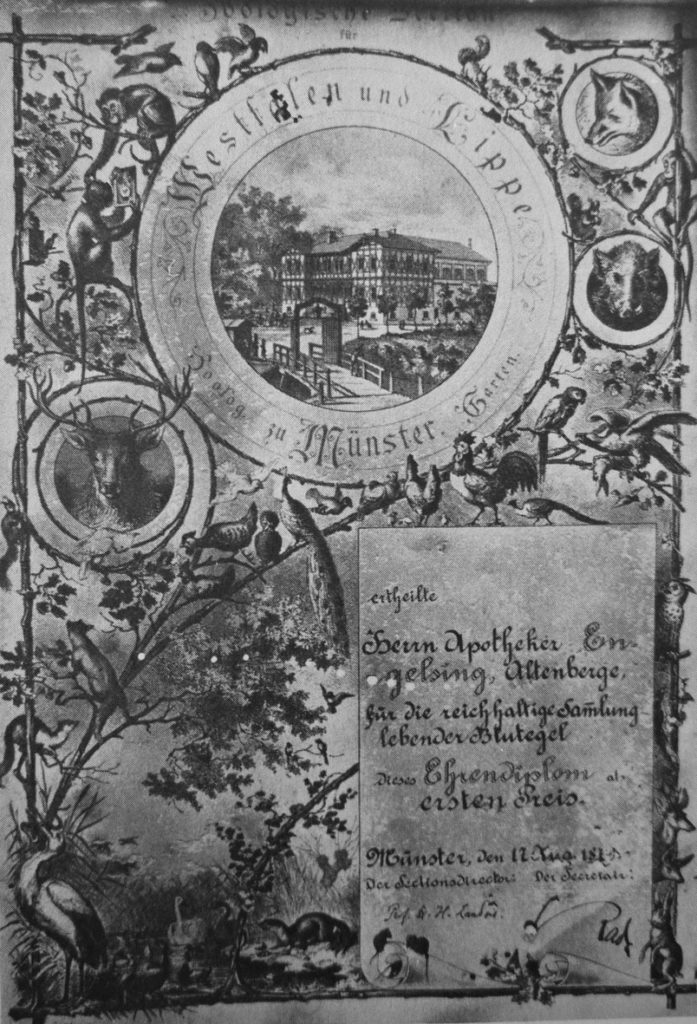 Zoologische Section
für
Westfalen und Lippe
Zoolog. Garten.
zu Münster.
ertheilte
Herrn Apotheker En-
gelsing, Altenberge,
für die reichhaltige Sam̄lung
lebender Blutegel
dieses Ehrendiplom al.
ersten Preis.
Münster, den 17. Aug. 18
Der Sectionsdirector: Der Secretair:
Prof. H. Landois.